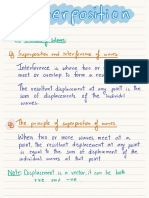 Superposition
Stationary Waves
Superposition and interference of waves
Interference is where two or more waves
meet or overlap to form a resultant wave
The resultant displacement at any point is the
sum of the displacements of the individual
waves.
The principle of superposition of waves
When two or more waves meet at a
point, the resultant displacement at any point
is equal to the sum of the displacement
of the individual waves.
Note: Displacement is a vector, it can be both
+ve and -ve